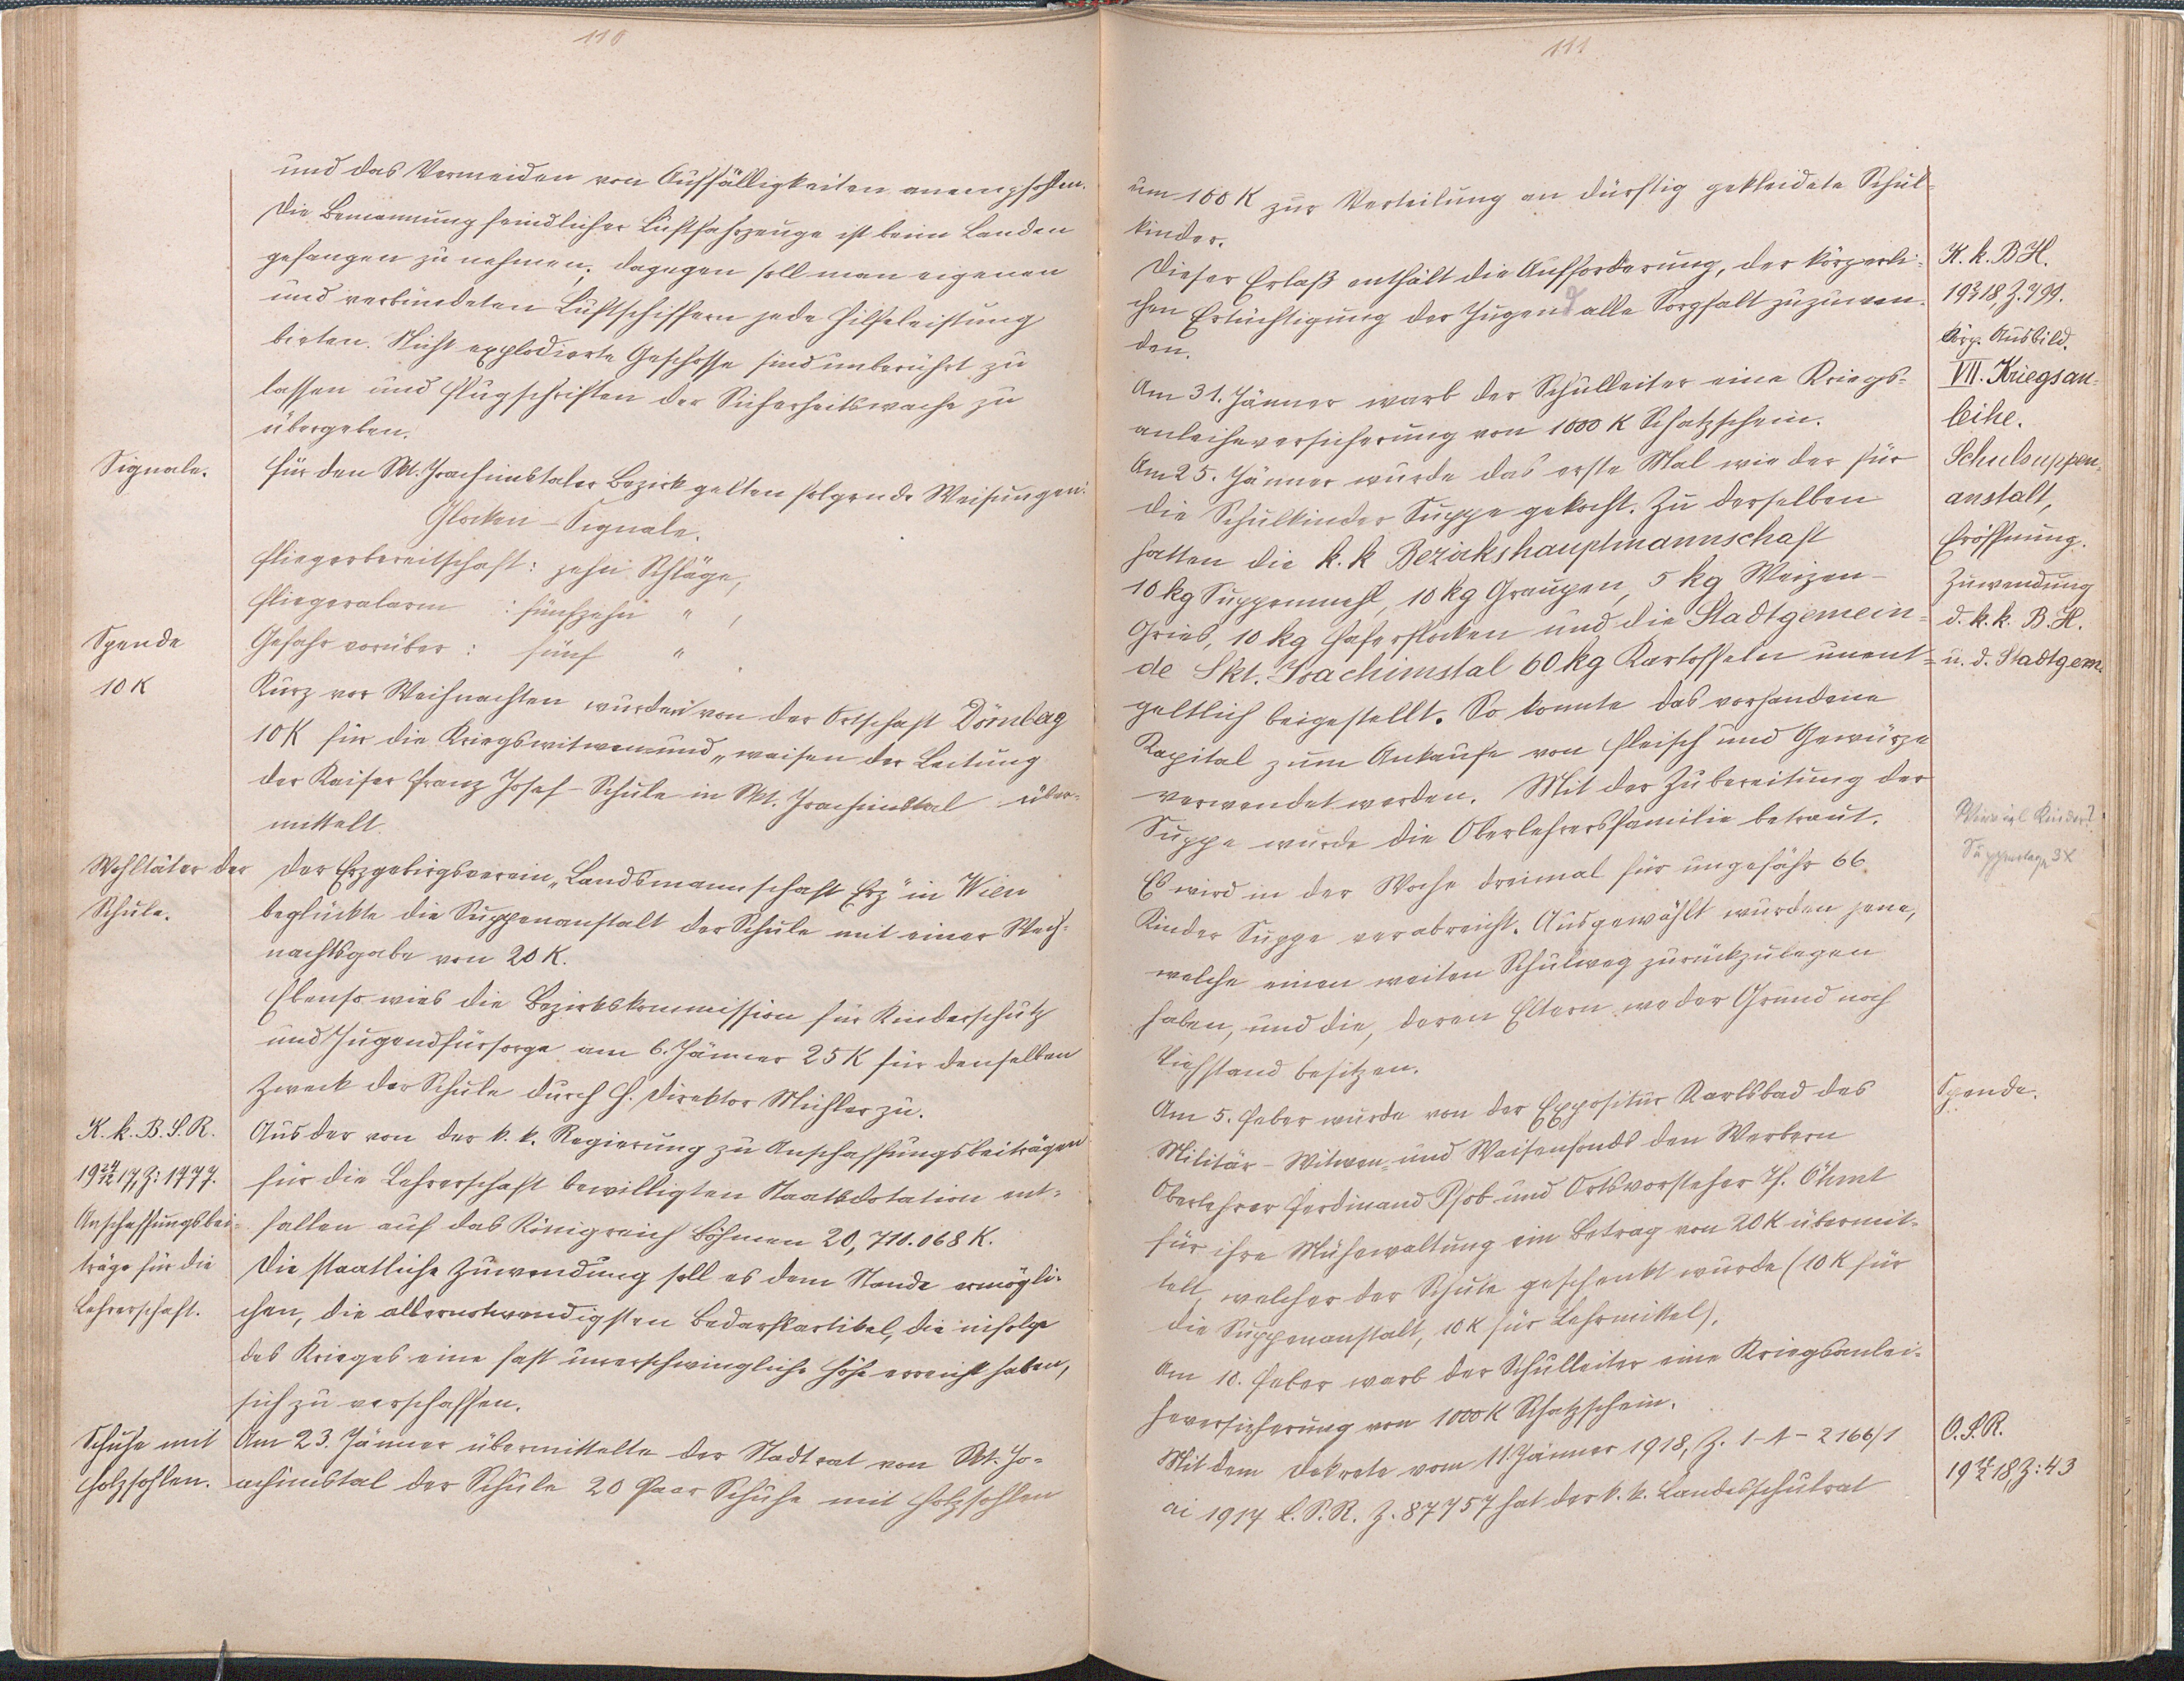 110
und das Vermeiden von Auffälligkeiten anempfohlen.
Die Bemannung feindlicher Luftfahrzeuge ist beim Landen
gefangen zu nehmen, dagegen soll man eigenen
und verbündeten Luftschiffern jede Hilfeleistung
bieten. Nicht explodierte Geschosse sind unberührt zu
lassen und Flugschriften der Sicherheitswache zu
übergeben.
Signale.
Für den Skt. Joachimstaler Bezirk gelten folgende Weisungen:
Glocken-Signale.
Fliegerbereitschaft: zehn Schläge,
Fliegeralarm : fünfzehn " ,
Gefahr vorüber : fünf " .
Spende
10 K
Kurz vor Weihnachten wurden von der Ortschaft Dörnbag
10 K für die Kriegswitwen und „waisen der Leitung
der Kaiser Franz Josef-Schule in Skt. Joachimstal über-
mittelt.
Wohltäter der
Schule.
Der Erzgebirgsverein „Landsmannschaft Erz" in Wien
beglückte die Suppenanstalt der Schule mit einer Weih-
nachtsgabe von 20 K.
Ebenso wies die Bezirkskommission für Kinderschutz
und Jugendfürsorge am 6. Jänner 25 K für denselben
Zweck der Schule durch H. Direktor Müchler zu.
K. k. B. S. R.
19 24/12 17, Z: 1777.
Anschaffungsbei-
träge für die
Lehrerschaft.
Aus der von der k. k. Regierung zu Anschaffungsbeiträgen
für die Lehrerschaft bewilligten Staatsdotation ent-
fallen auf das Königreich Böhmen 20,710.068 K.
Die staatliche Zuwendung soll es dem Stande ermögli-
chen, die allernotwendigsten Bedarfsartikel, die infolge
des Krieges eine fast unerschwingliche Höhe erreicht haben,
sich zu verschaffen.
Schuhe mit
Holzsohlen.
Am 23. Jänner übermittelte der Stadtrat von Skt. Jo-
achimstal der Schule 20 Paar Schuhe mit Holzsohlen
111
um 100 K zur Verteilung an dürftig gekleidete Schul-
kinder.
K. k. B. H.
19 2/1 18, Z. 799.
körp. Ausbild.
Dieser Erlaß enthält die Aufforderung, der körperli-
chen Ertüchtigung der Jugend alle Sorgfalt zuzuwen-
den.
VII. Kriegsan-
leihe.
Am 31. Jänner warb der Schulleiter eine Kriegs-
anleiheversicherung von 1000 K Schatzschein.
Schulsuppen-
anstalt,
Eröffnung.
Zuwendung
d. k. k. B. H.
u. d. Stadtgem.
Am 25. Jänner wurde das erste Mal wieder für
die Schulkinder Suppe gekocht. Zu derselben
hatten die k. k Bezirkshauptmannschaft
10 kg Suppenmehl, 10 kg Graupen, 5 kg Weizen-
Gries, 10 kg Haferflocken und die Stadtgemein-
de Skt. Joachimstal 60 kg Kartoffeln unent-
geltlich beigestellt. So konnte das vorhandene
Kapital zum Ankaufe von Fleisch und Gewürze
verwendet werden. Mit der Zubereitung der
Suppe wurde die Oberlehrersfamilie betraut.
Wieviel Kinder?
Suppentage 3x
Es wird in der Woche dreimal für ungefähr 66
Kinder Suppe verabreicht. Ausgewählt wurden jene,
welche einen weiten Schulweg zurückzulegen
haben, und die, deren Eltern weder Grund noch
Viehstand besitzen.
Spende.
Am 5. Feber wurde von der Expositur Karlsbad des
Militär-Witwen- und Waisenfonds den Werbern
Oberlehrer Ferdinand Pfob und Ortsvorsteher
für ihre Mühewaltung ein Betrag von 20 K übermit-
telt, welcher der Schule geschenkt wurde (10 K für
die Suppenanstalt, 10 K für Lehrmittel).
Am 10. Feber warb der Schulleiter eine Kriegsanlei-
heversicherung von 1000 K Schatzschein.
O. S. R.
19 18, Z: 43
Mit dem Dekrete vom 11. Jänner 1918, Z. I-A-2166/1
ai 1917 L. S. R. Z. 87757 hat der k. k. Landesschulrat